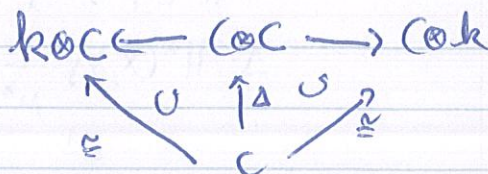 k⊗C ← C⊗C → C⊗k
≅ ↺ ↑ Δ ↺ ≅
C